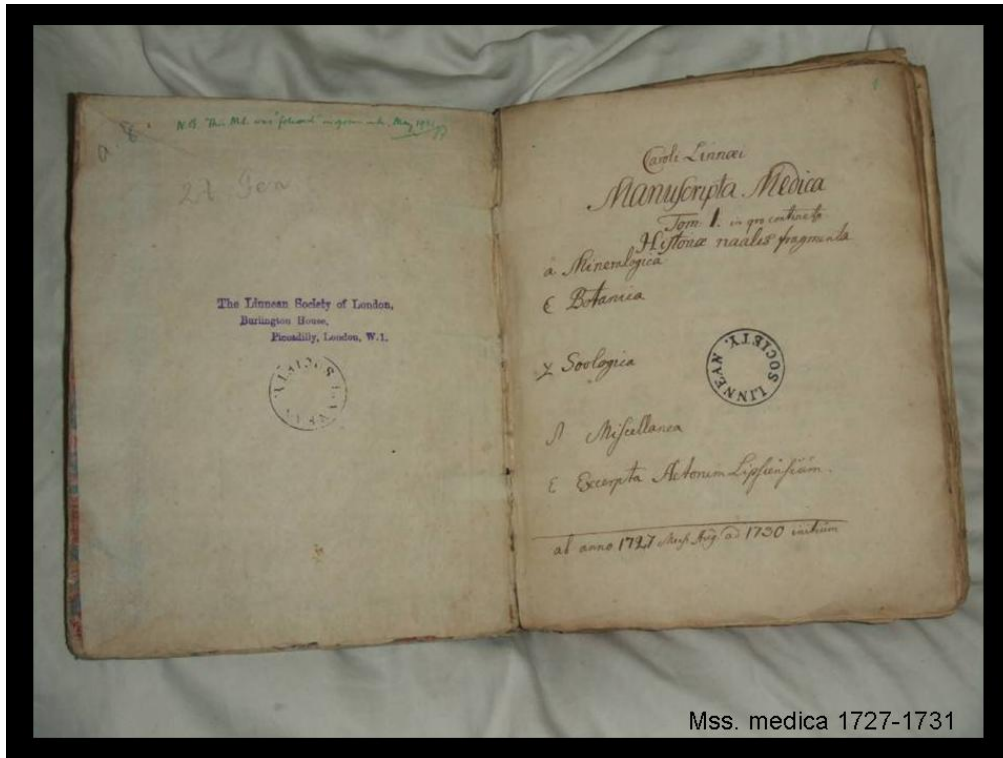 a. 8.
N.B. This MS. was "foliated" in green ink. May 19
The Linnean Society of London,
Burlington House,
Piccadilly, London, W.1.
LINNEAN SOCIETY.
1
Caroli Linnæi
Manuscripta Medica
Tom. 1. in quo continetr
Historiæ naales fragmenta
a. Mineralogica
Botanica
Zoologica
Miscellanea
ε Excerpta Actorum Lipsiensium.
LINNEAN SOCIETY.
ab anno 1727 Mens Aug ad 1730 initium
Mss. medica 1727-1731